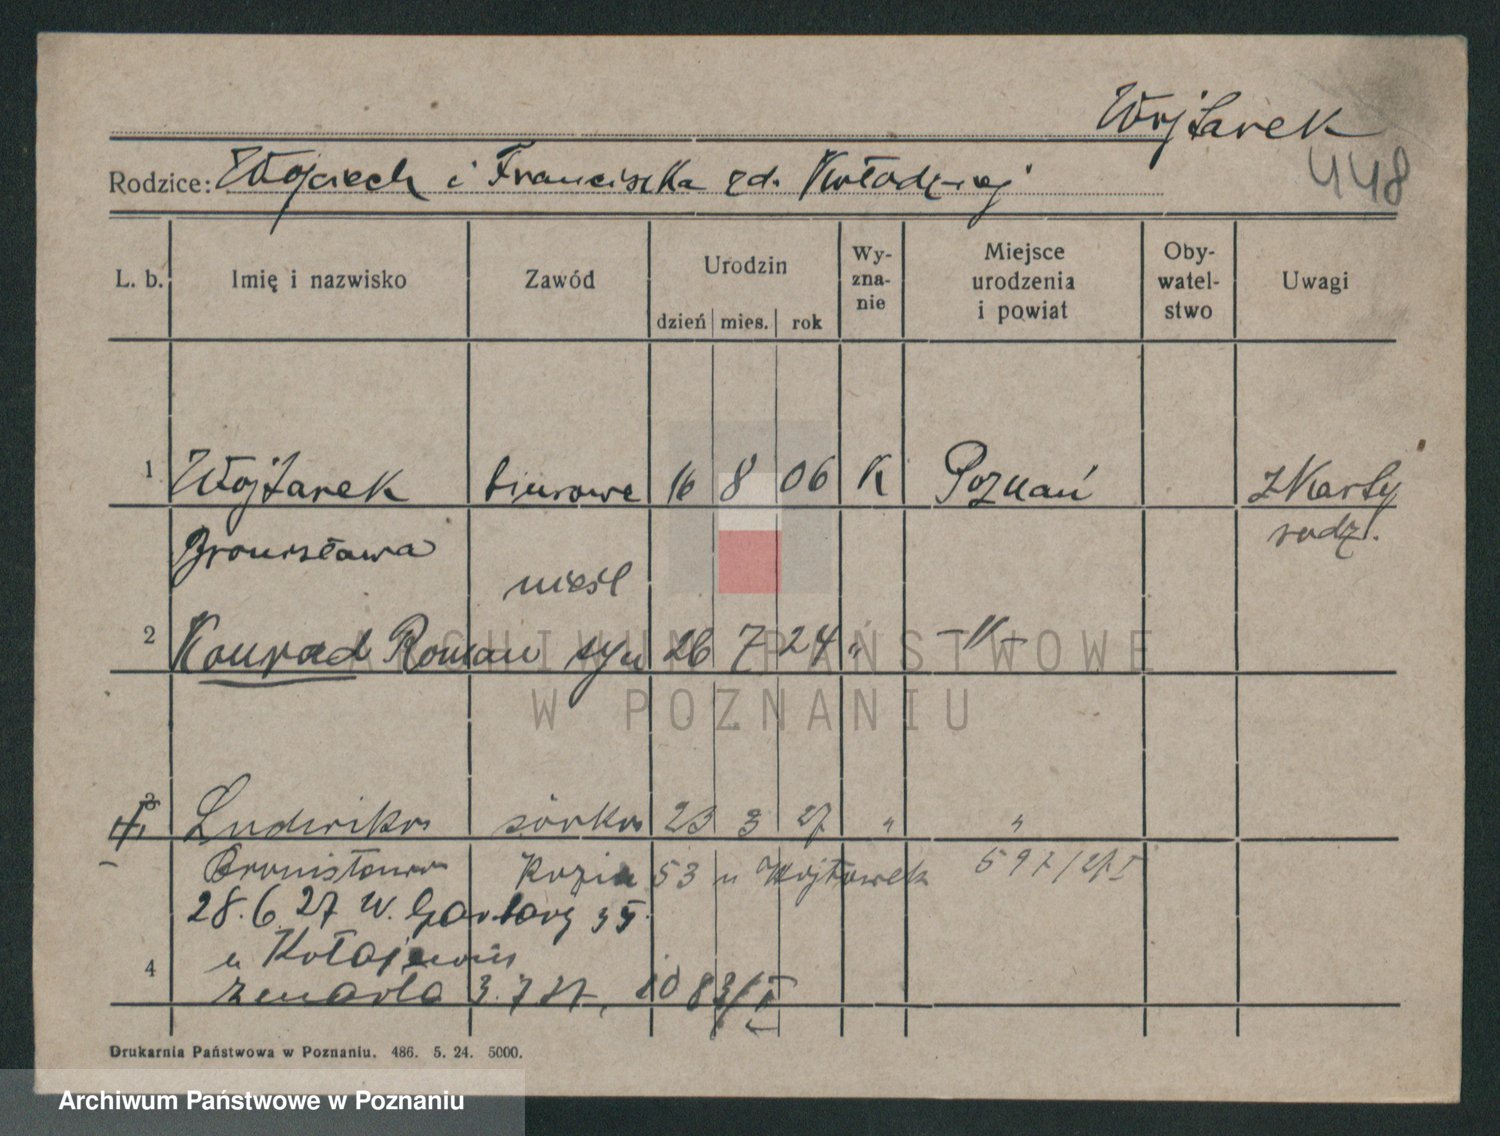 Wojtarek
448
Rodzice: Wojciech i Franciszka zd. Kołodziej
L. b. Imię i nazwisko Zawód Urodzin Wy-zna-nie Miejsce urodzenia i powiat Oby-watel-stwo Uwagi
dzień mies. rok
1 Wojtarek biurowa 16 8 06 K Poznań z Karty
Bronisława rodz.
nieśl
2 Konrad Roman syn 26 7 24 " -"-
3 Ludwika córka 23 3 27 " "
Bronisława Kozia 53 u Wojtarek 597/27 I
28.6.27 W. Garbary 35
u
4 zmarła 3.7.27, 1083/I
ARCHIWUM PAŃSTWOWE
W POZNANIU
Drukarnia Państwowa w Poznaniu. 486. 5. 24. 5000.
Archiwum Państwowe w Poznaniu